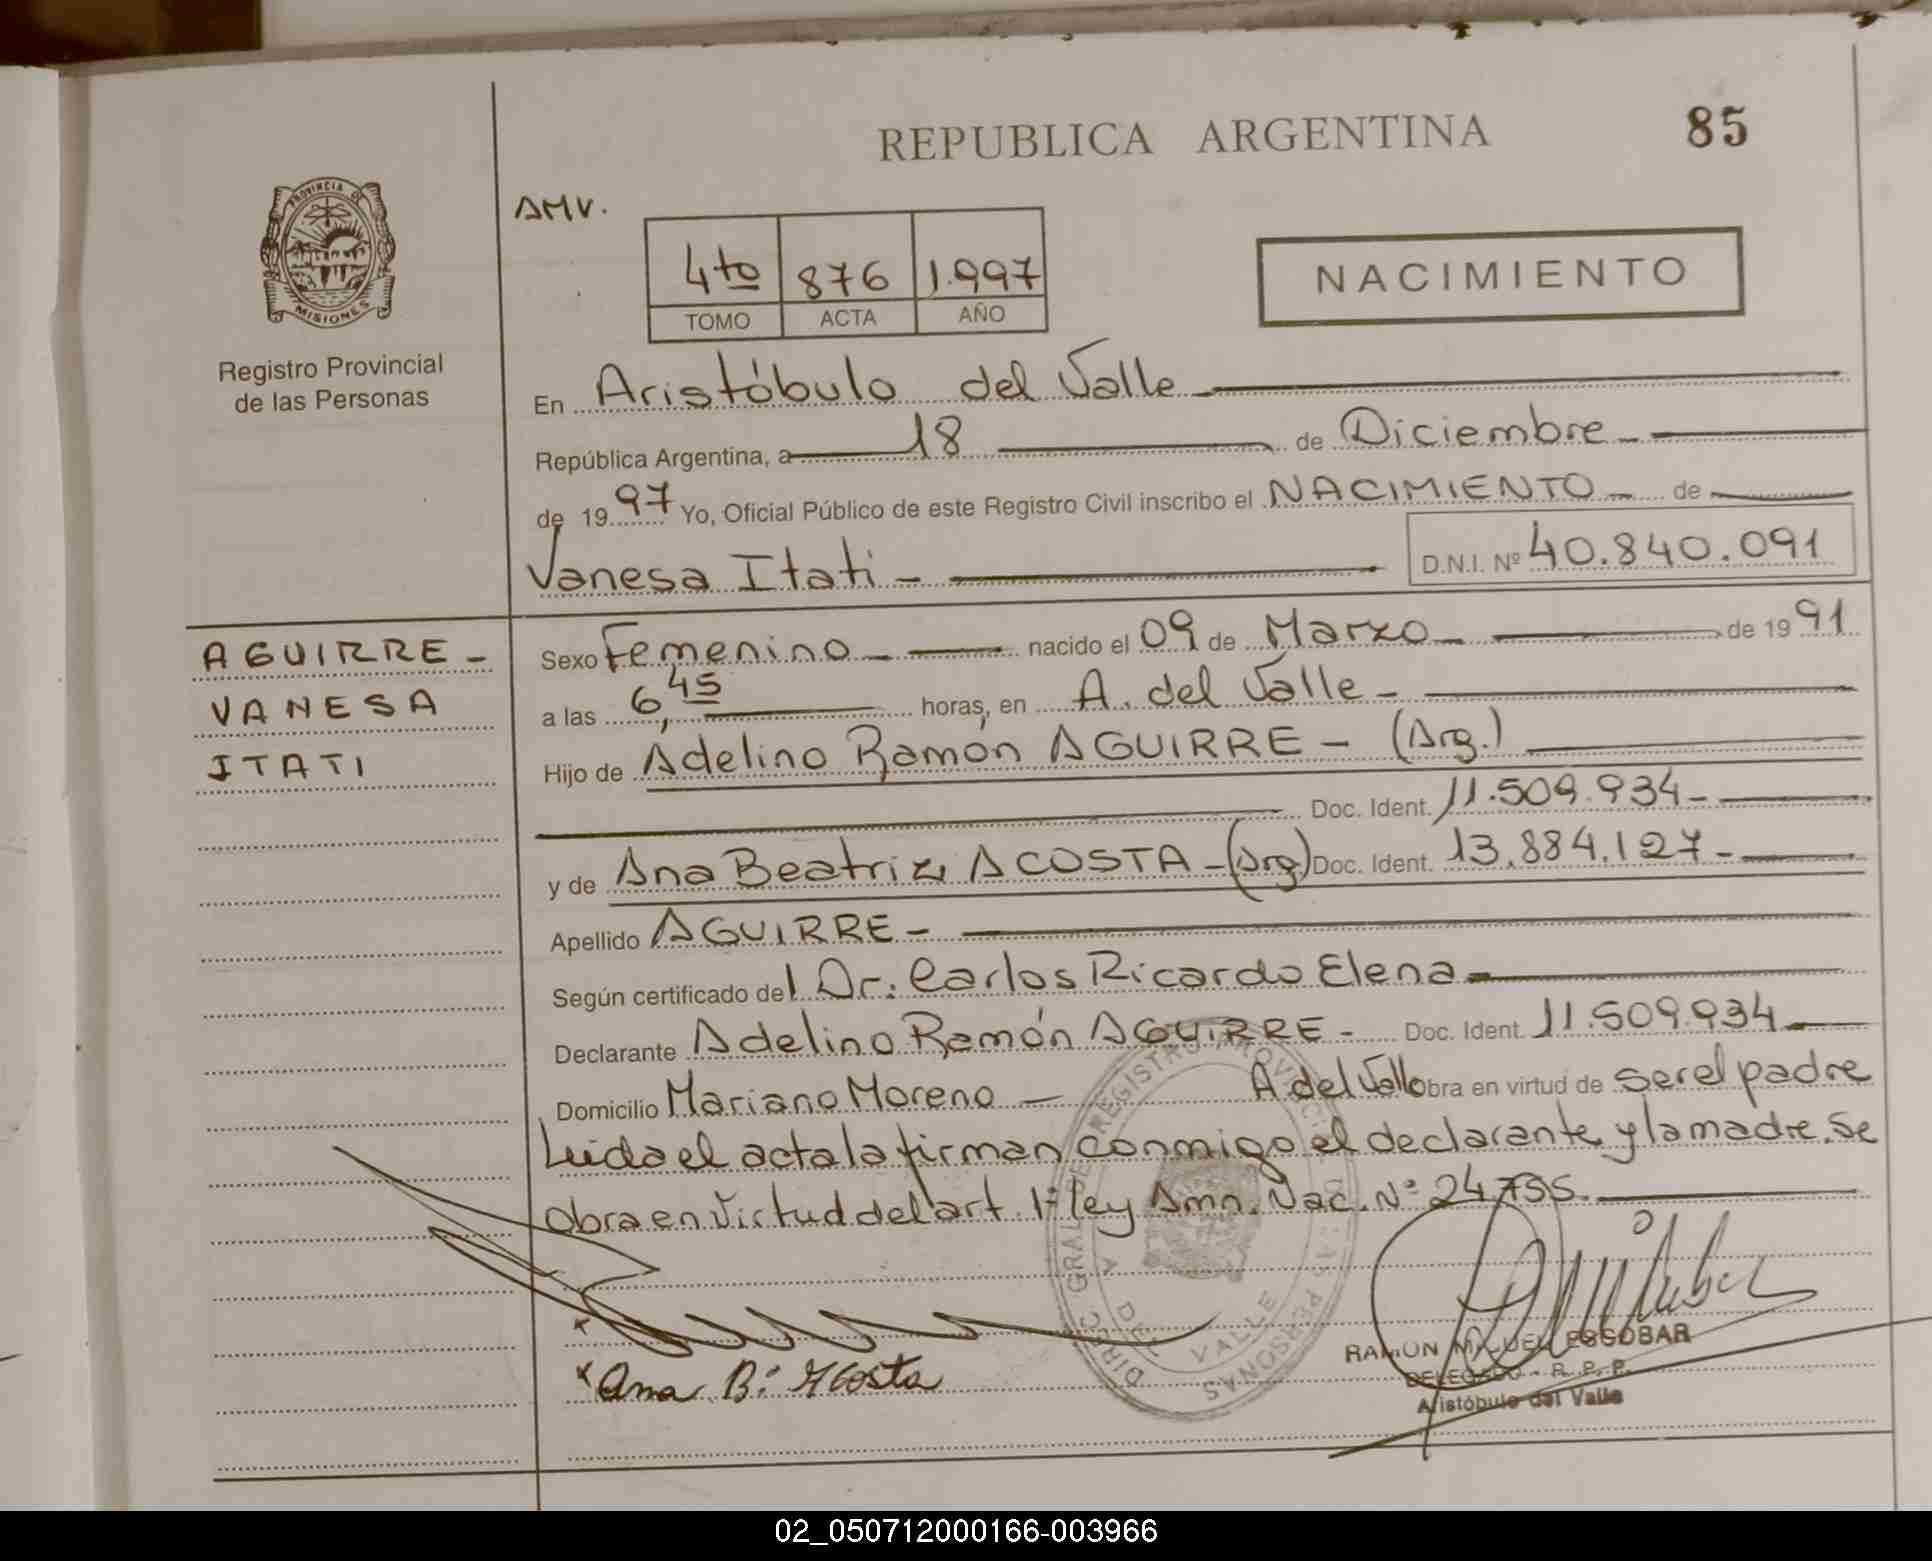 REPUBLICA ARGENTINA
85
PROVINCIA DE
MISIONES
Registro Provincial
de las Personas
AMV.
4to 876 1.997
TOMO ACTA AÑO
NACIMIENTO
En Aristóbulo del Valle
República Argentina, a 18 de Diciembre
de 1997 Yo, Oficial Público de este Registro Civil inscribo el NACIMIENTO de
Vanesa Itati
D.N.I. Nº 40.840.091
AGUIRRE
VANESA
ITATI
Sexo Femenino nacido el 09 de Marzo de 1991
a las 6,45 horas, en A. del Valle
Hijo de Adelino Ramón AGUIRRE - (Arg.)
Doc. Ident. 11.509.934
y de Ana Beatriz ACOSTA - (Arg) Doc. Ident. 13.884.127
Apellido AGUIRRE
Según certificado del Dr. Carlos Ricardo Elena
Declarante Adelino Ramón AGUIRRE - Doc. Ident. 11.509.934
Domicilio Mariano Moreno - A del Valle obra en virtud de ser el padre
Leida el acta la firman conmigo el declarante y la madre. Se
obra en virtud del art. 1º ley Amn. Nac. Nº 24.755.
DIREC. GRAL. DE REGISTRO PROVINCIAL DE LAS PERSONAS
A. DEL VALLE
x
x Ana B. Acosta
RAMON MIGUEL ESCOBAR
DELEGADO - R. P. P.
Aristóbulo del Valle
02_050712000166-003966